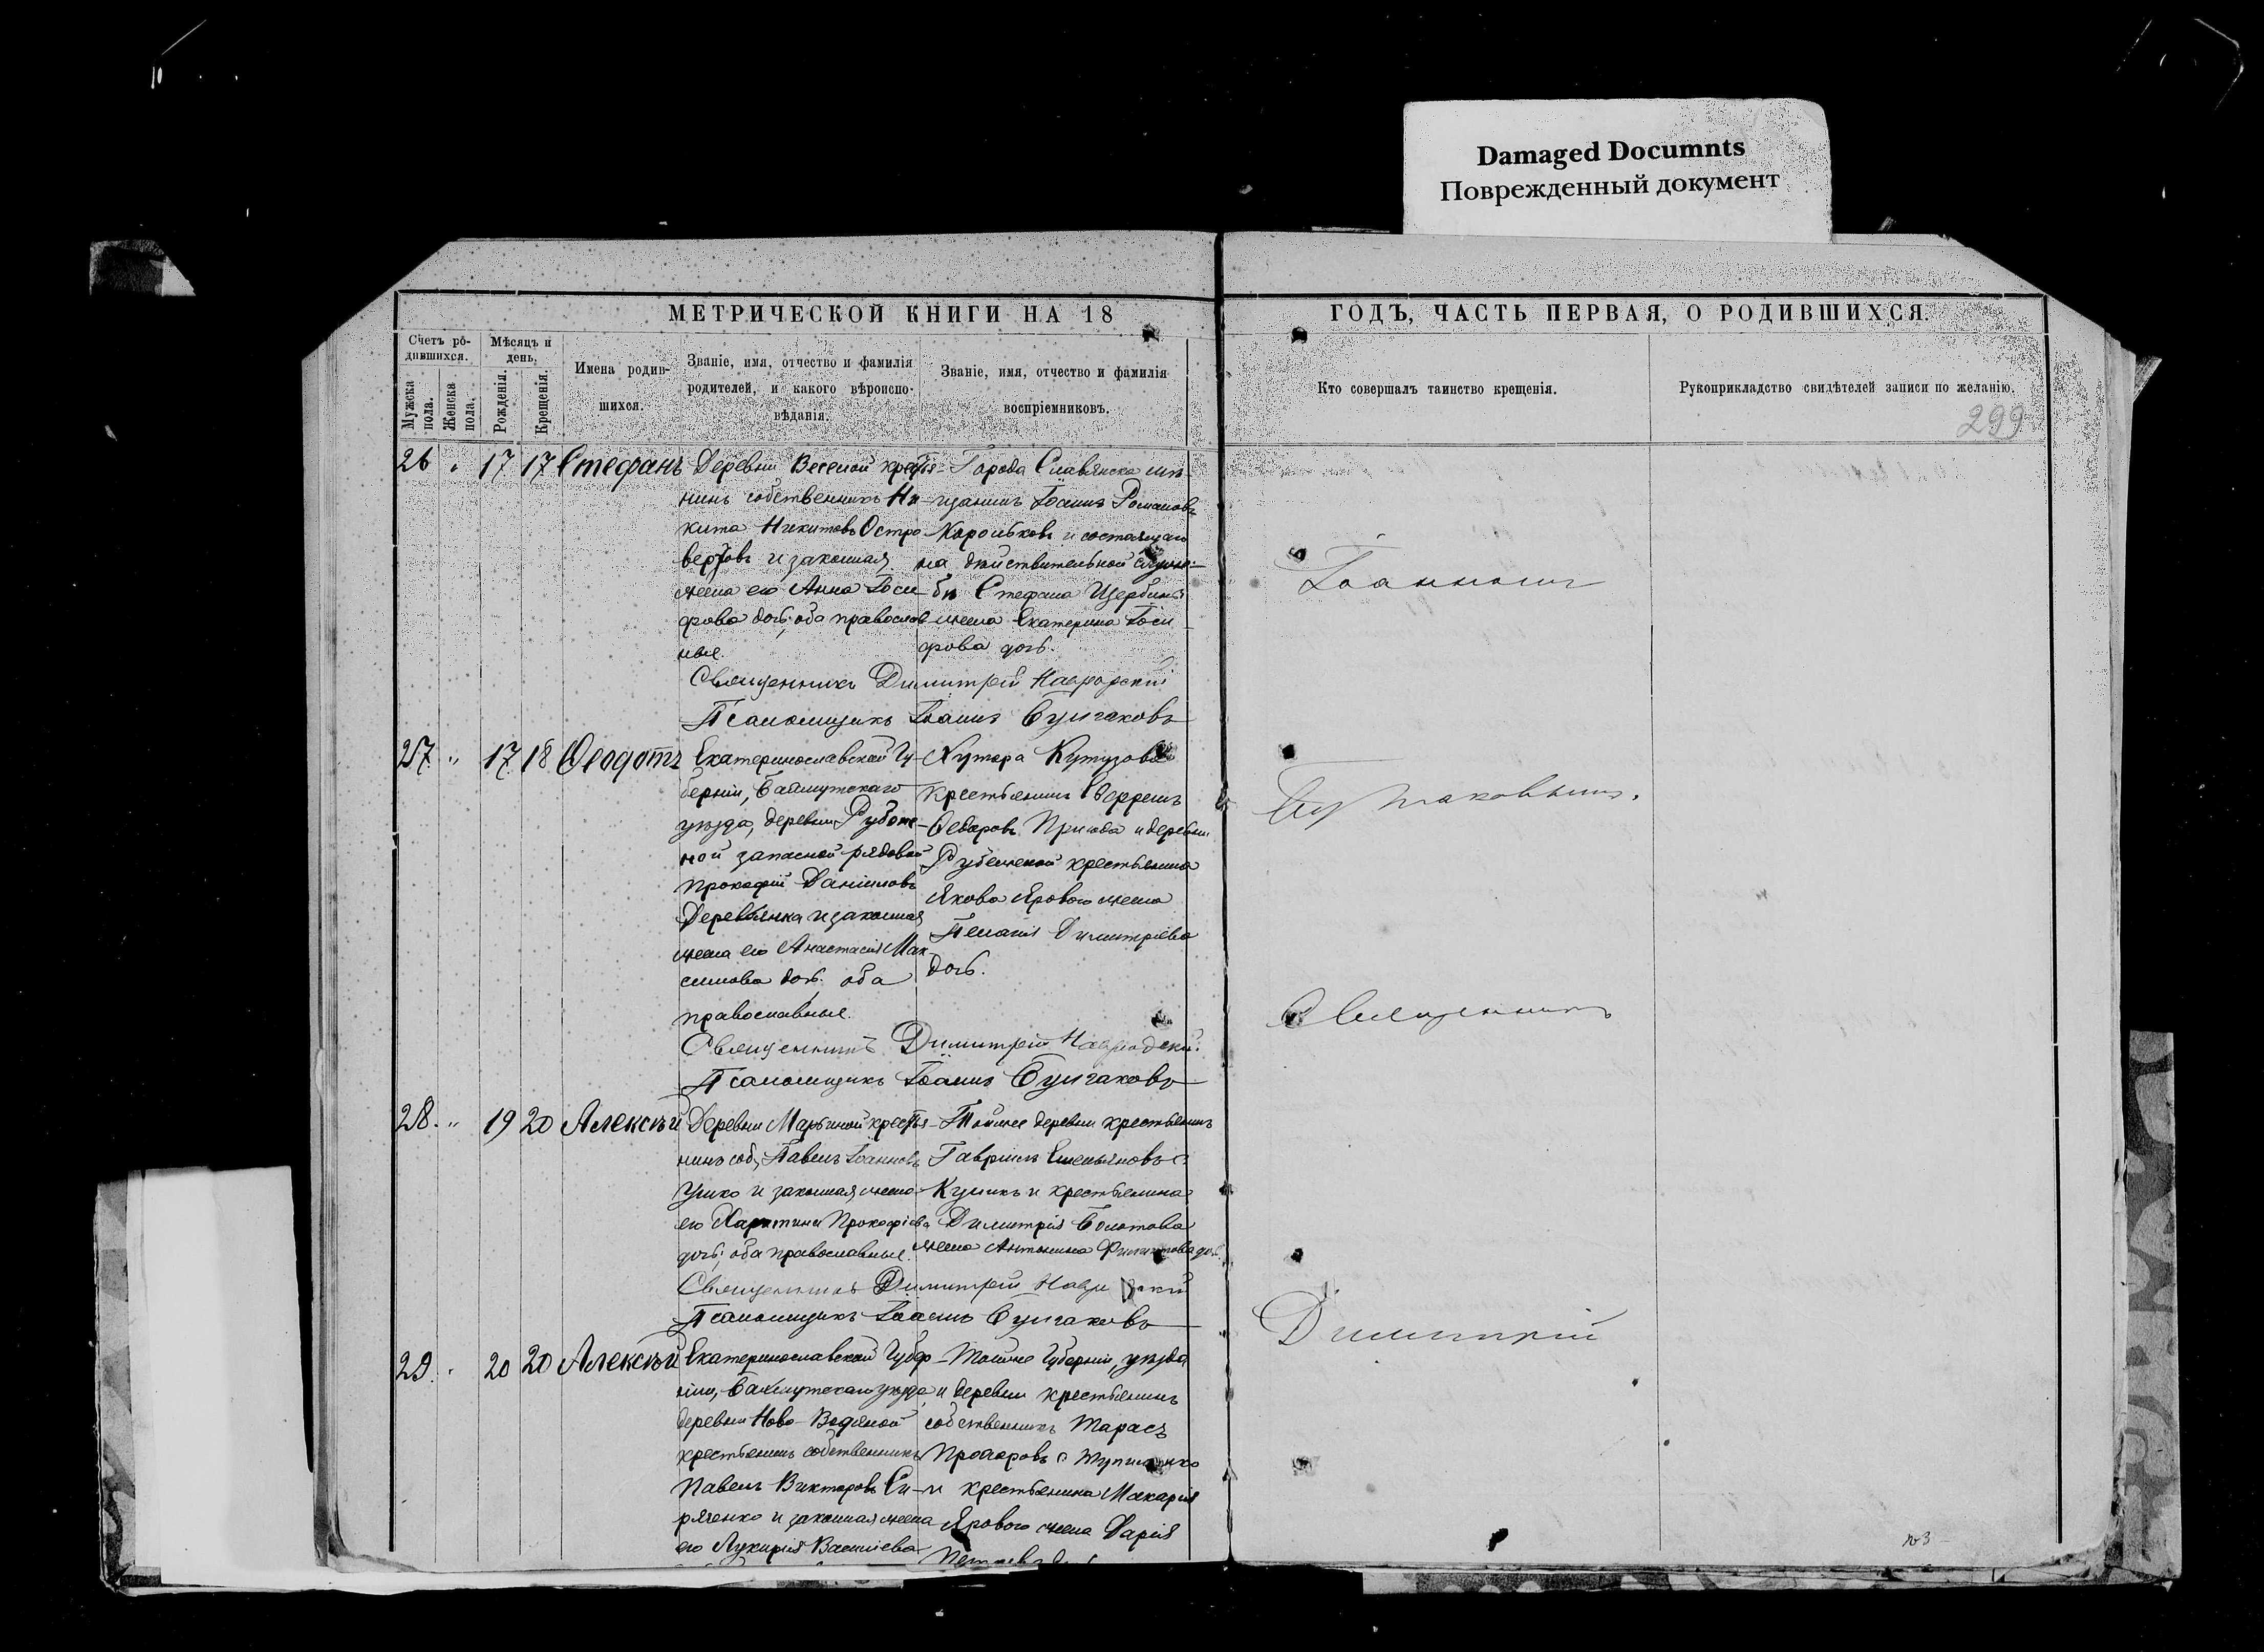 Damaged Documnts
Поврежденный документ
МЕТРИЧЕСКОЙ КНИГИ НА 18
ГОДЪ, ЧАСТЬ ПЕРВАЯ, О РОДИВШИХСЯ.
Счетъ ро-
дившихся.
Мужска
пола.
Женска
пола.
Мѣсяцъ и
день.
Рожденія.
Крещенія.
Имена родив-
шихся.
Званіе, имя, отчество и фамилія
родителей, и какого вѣроиспо-
вѣданія.
Званіе, имя, отчество и фамилія
воспріемниковъ.
Кто совершалъ таинство крещенія.
Рукоприкладство свидѣтелей записи по желанію.
299
26 " 17 17 Стефанъ
Деревни Веселой кресть-
нинъ собственникъ Ни-
кита Никитовъ Остро-
верховъ и законная
жена его Анна Іоси-
фова дочь; оба православ
ные.
Города Славянска мѣ-
щанинъ Іоаннъ Романовъ
и состоящаго
на дѣйствительной служ-
бѣ Стефана Щербины
жена Екатерина Іоси
фова дочь.
Священникъ Димитрій
Псаломщикъ Іоаннъ Булгаковъ
27 " 17 18 Ѳеодотъ
Екатеринославской Гу-
берніи, Бахмутскаго
уѣзда, деревни Рубеж-
ной запасной рядовой
Прокофій Даніиловъ
Деревянка и законная
жена его Анастасія Мак-
симова дочь. оба
православные.
Хутора Кутузовка
крестьянинъ Ефремъ
Ѳедоровъ и деревни
Рубежной крестьянина
Якова Ярового жена
Пелагія Димитріева
дочь.
Священникъ Димитрій
Псаломщикъ Іоаннъ Булгаковъ
28. " 19 20 Алексѣй
Деревни Марьиной кресть-
нинъ соб, Павелъ Іоанновъ
и законная жена
его Харитина Прокофіева
дочь; оба православные.
Тойже деревни крестьянинъ
Гавріилъ Емельяновъ
Куликъ и крестьянина
Димитрія Болотова
жена Антонина Филиппова доч.
Священникъ Димитрій
Псаломщикъ Іоаннъ Булгаковъ
29. " 20 20 Алексѣй
Екатеринославской Губер
ніи, Бахмутскаго уѣзда,
деревни Ново-Водяной
крестьянинъ собственникъ
Павелъ Викторовъ Си-
ряченко и законная жена
его Лукирія Василіева
Тойже Губерніи, уѣзда
и деревни крестьянинъ
собственникъ Тарасъ
Прохоровъ
и крестьянина Макарія
Ярового жена Дарія
Іоанномъ
Священникъ
Димитрій